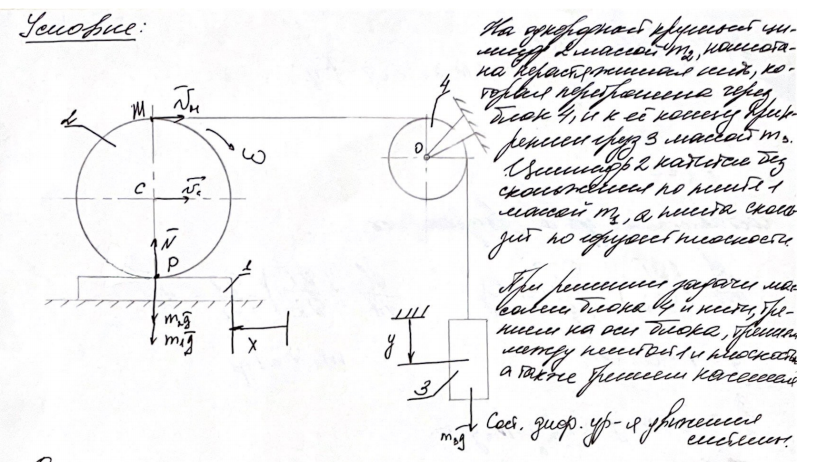 Условие:
На однородный круглый ци-
линдр 2 массой m₂, намота-
на нерастяжимая нить, ко-
торая переброшена через
блок 4, и к её концу прик-
реплен груз 3 массой m₃.
Цилиндр 2 катится без
скольжения по плите 1
массой m₁, а плита сколь-
зит по горизонт плоскости
При решении задачи мас-
сами блока 4 и нити, тре-
нием на оси блока, трением
между плитой 1 и плоскость
а также трением качения
Сост. диф. ур-я движения
системы.
2
M
V̄м
ω
4
O
C
V̄c
N̄
P
1
m₂ḡ
m₁ḡ
x
y
3
m₃ḡ